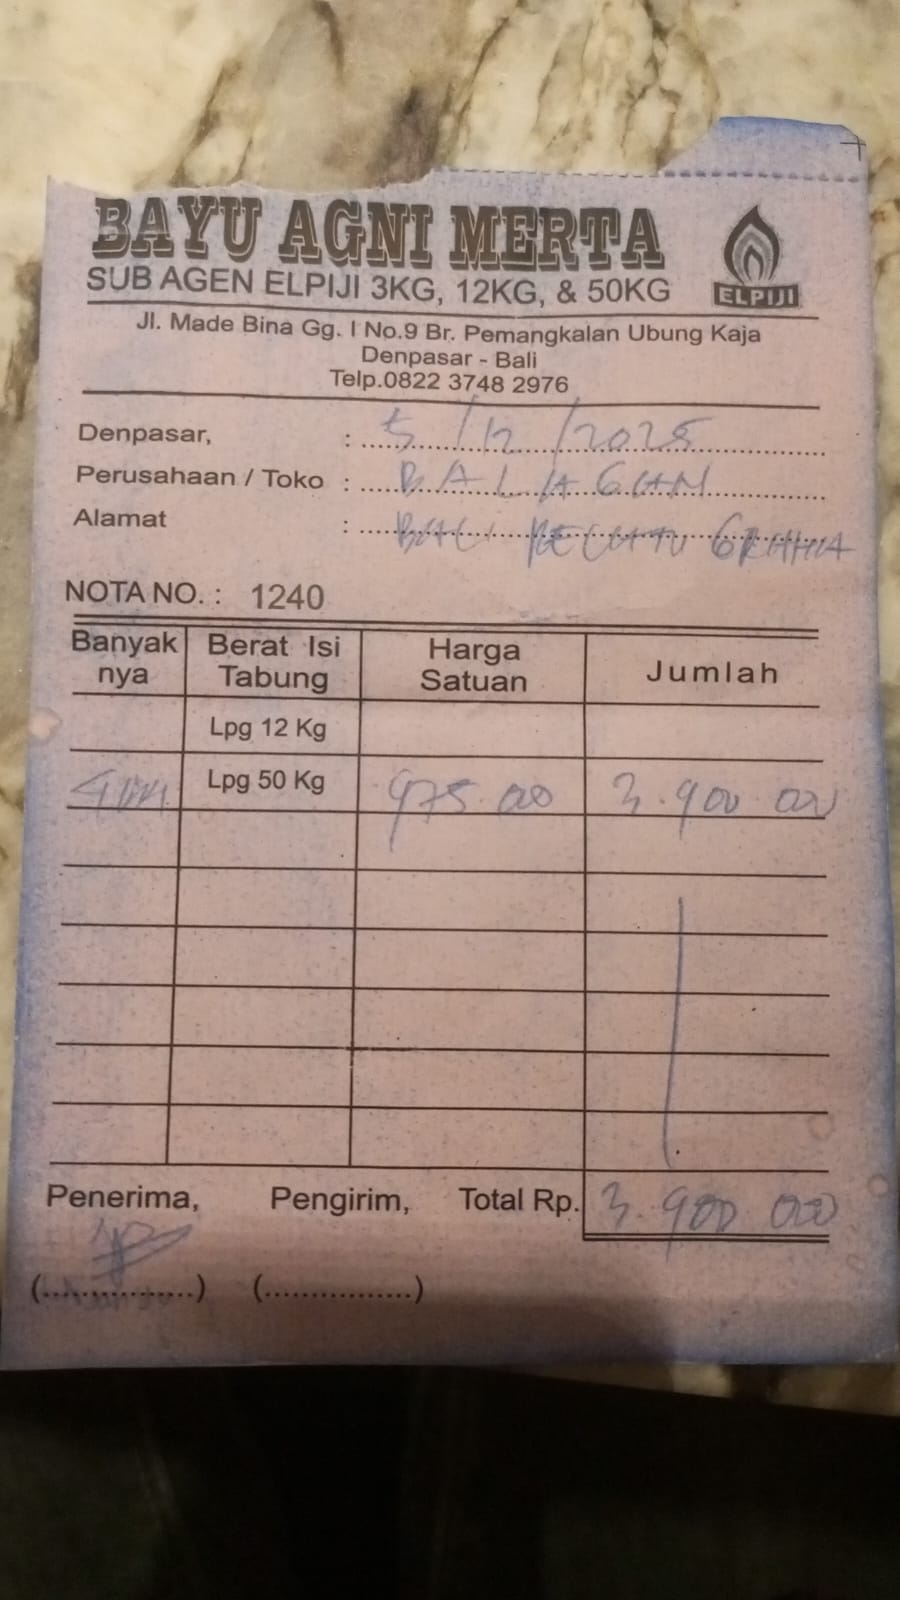 BAYU AGNI MERTA
SUB AGEN ELPIJI 3KG, 12KG, & 50KG
ELPIJI
Jl. Made Bina Gg. I No.9 Br. Pemangkalan Ubung Kaja
Denpasar - Bali
Telp.0822 3748 2976
Denpasar, : 5/12/2025
Perusahaan / Toko : BALAGUN
Alamat : BALI
NOTA NO. : 1240
Banyak nya Berat Isi Tabung Harga Satuan Jumlah
Lpg 12 Kg
4 Lpg 50 Kg 975.00 3.900 000
Penerima, Pengirim, Total Rp. 3.900 000
(................) (................)